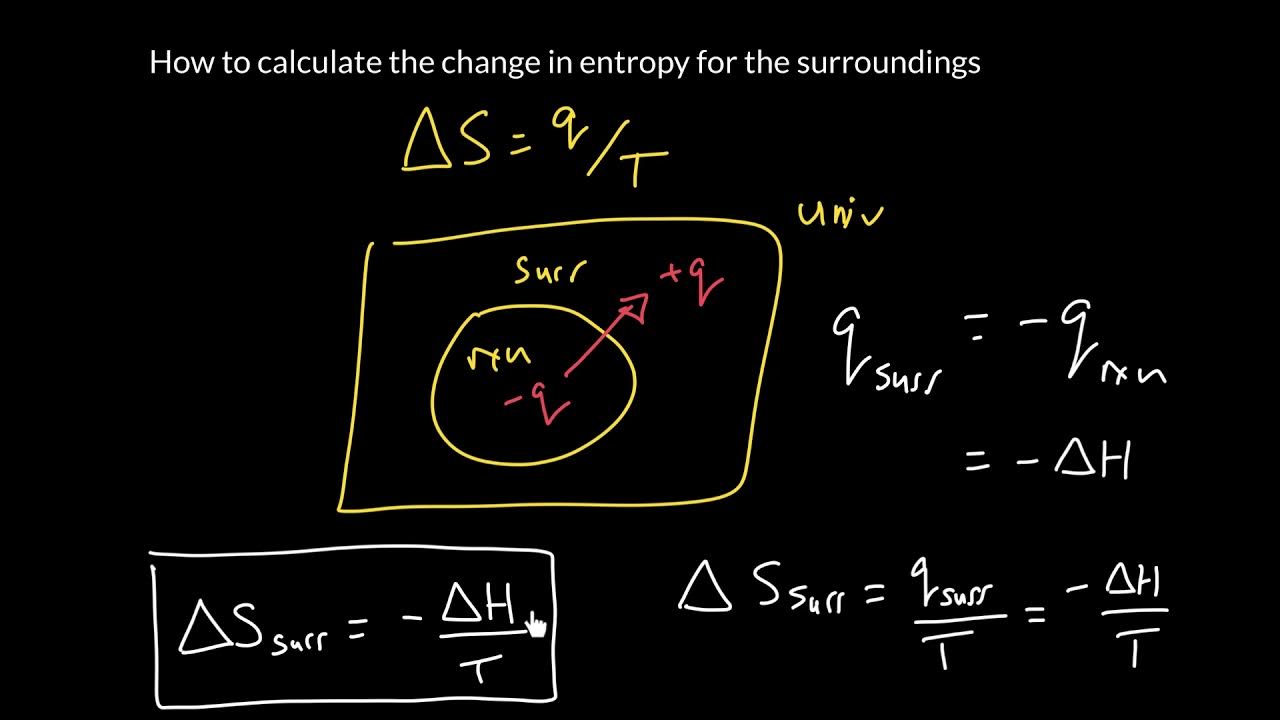 How to calculate the change in entropy for the surroundings
ΔS = q/T
univ
surr
+q
rxn
-q
q_surr = -q_rxn
= -ΔH
ΔS_surr = q_surr/T = -ΔH/T
ΔS_surr = -ΔH/T